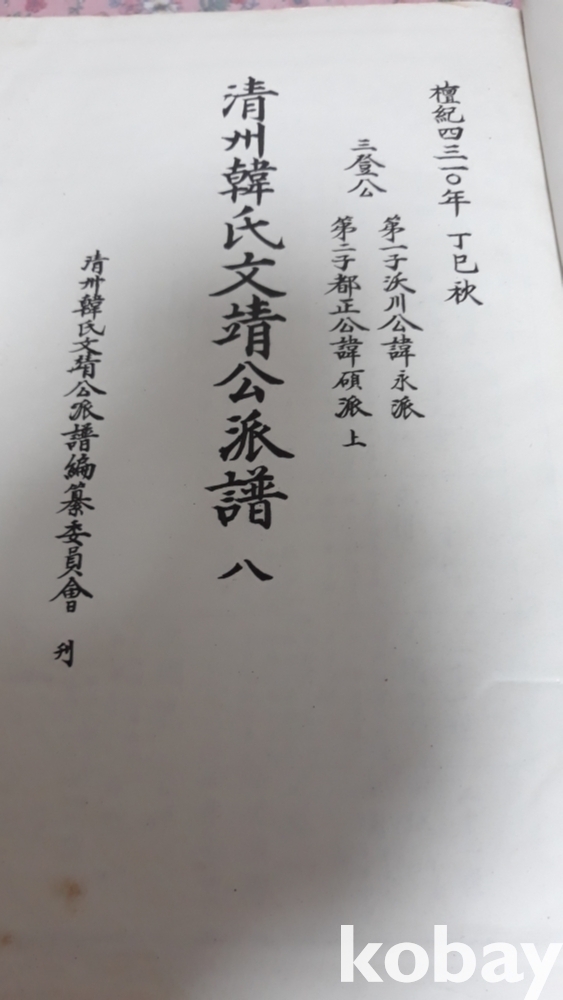 檀紀四三一〇年 丁巳秋
三登公
第一子沃川公諱永派
第二子都正公諱碩派 上
清州韓氏文靖公派譜 八
清州韓氏文靖公派譜編纂委員會 刊
kobay